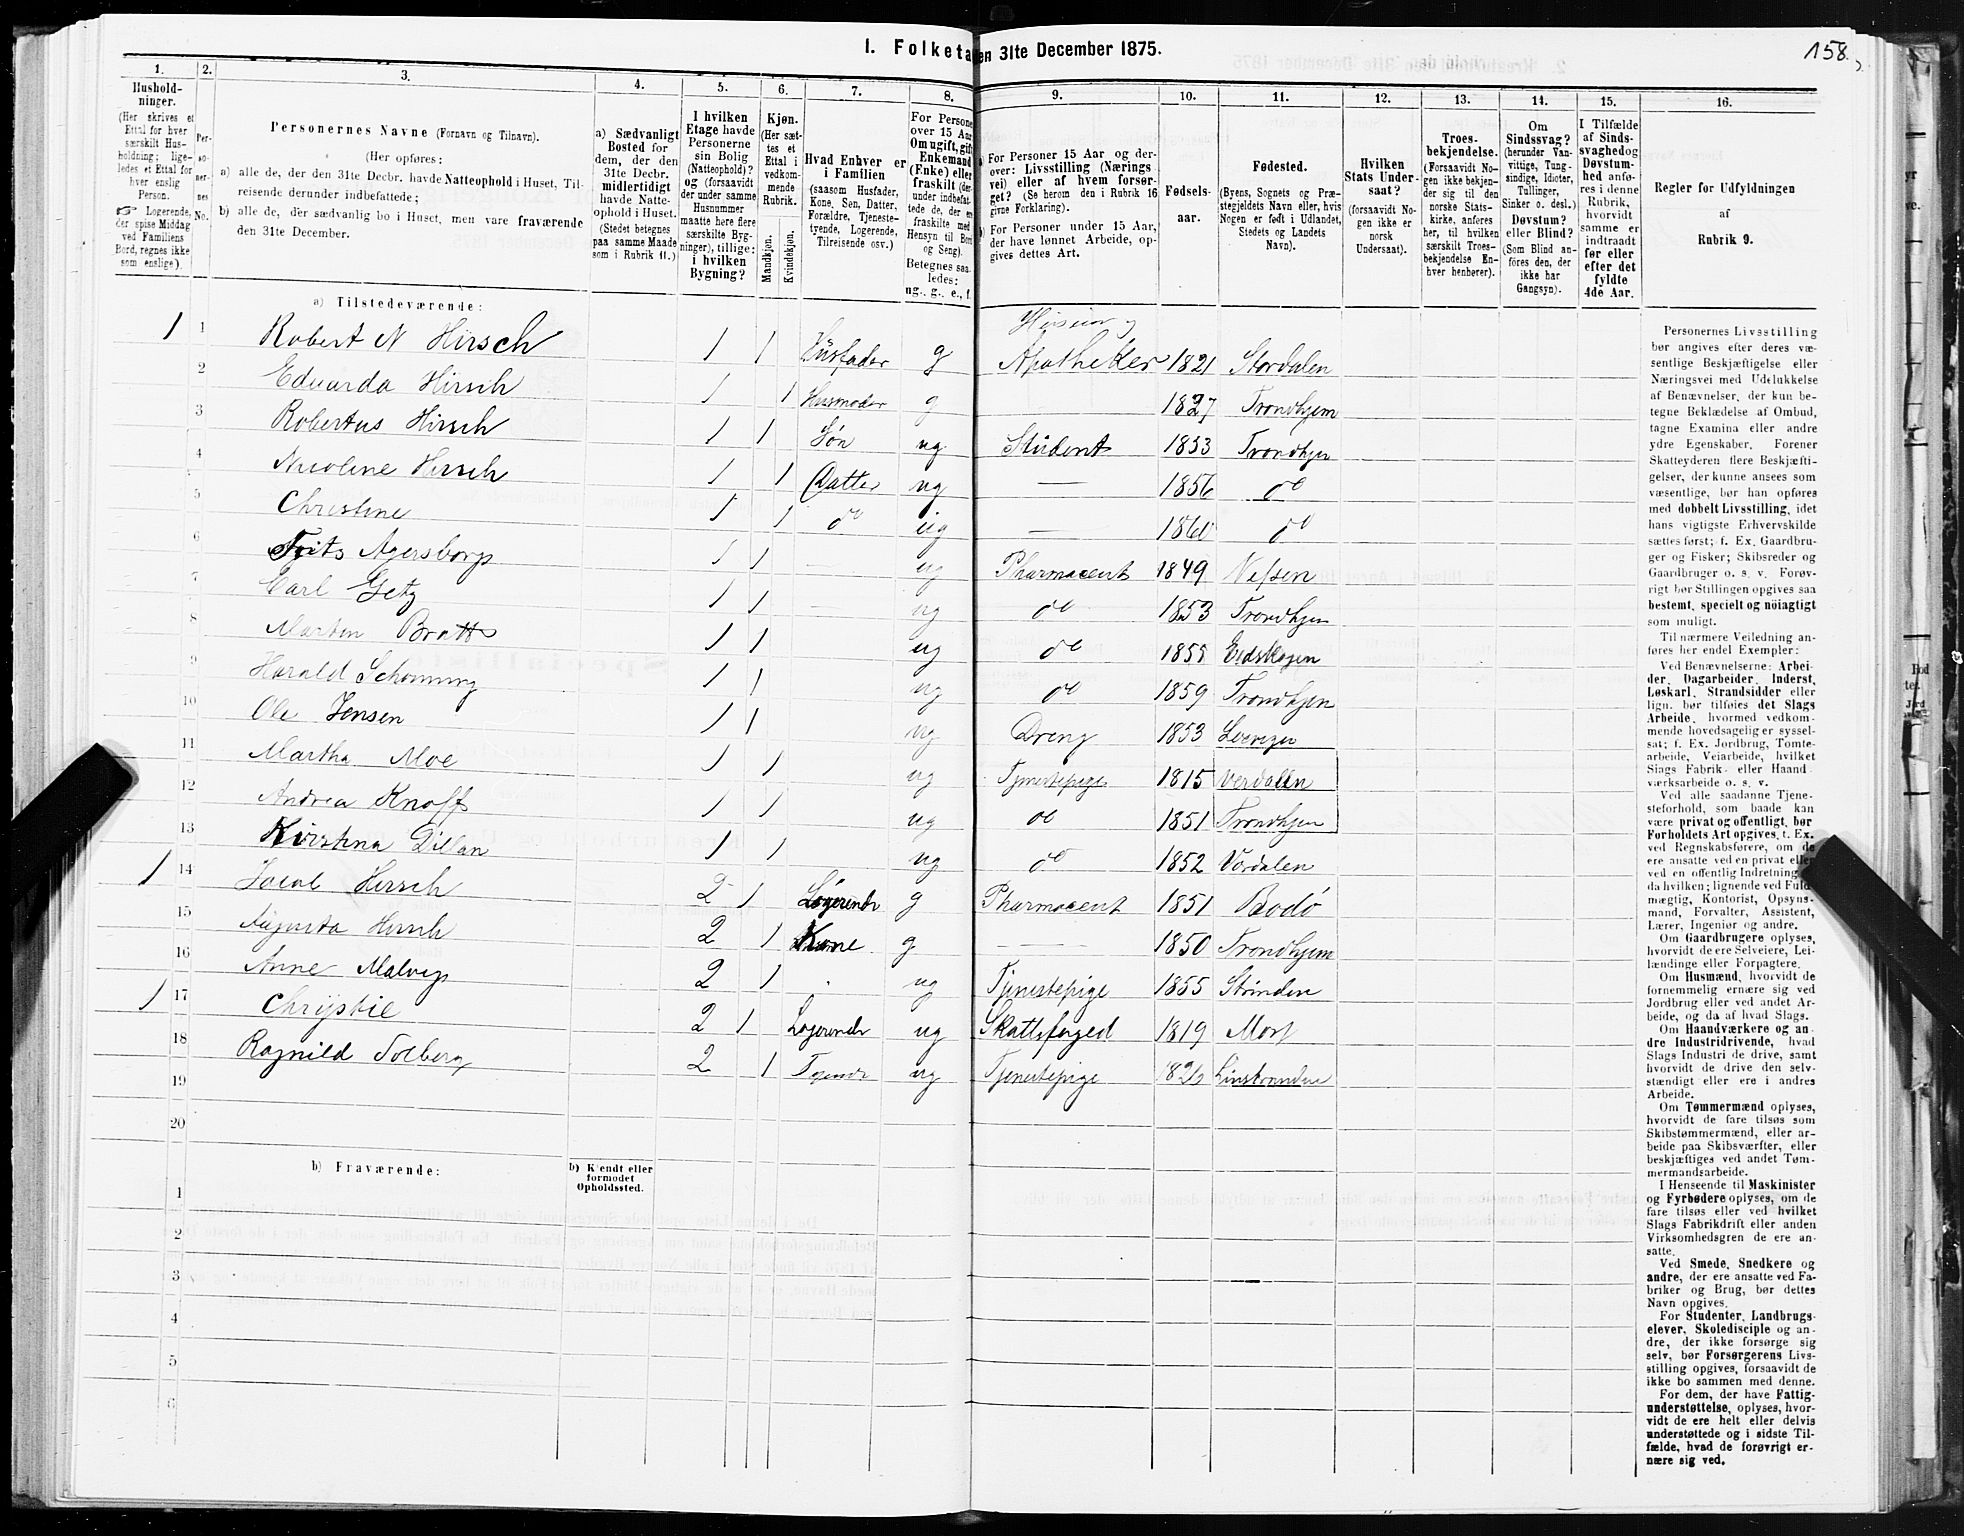 158
I. Folketa en 31te December 1875.
1. 2. 3. 4. 5. 6. 7. 8. 9. 10. 11. 12. 13. 14. 15. 16.
Hushold-
ninger.
(Her skrives et
Ettal for hver
særskilt Hus-
holdning; lige-
ledes et Ettal for
hver enslig
Person.
☞ Logerende,
der spise Middag
ved Familiens
Bord, regnes ikke
som enslige).
Per-
so-
ner-
nes
No.
Personernes Navne (Fornavn og Tilnavn).
(Her opføres:
a) alle de, der den 31te Decbr. havde Natteophold i Huset, Til-
reisende derunder indbefattede;
b) alle de, der sædvanlig bo i Huset, men vare fraværende
den 31te December.
a) Sædvanligt
Bosted for
dem, der den
31te Decbr.
midlertidigt
havde Natte-
ophold i Huset.
(Stedet betegnes
paa samme Maade
som i Rubrik 11.)
I hvilken
Etage havde
Personerne
sin Bolig
(Natteophold)?
og (forsaavidt
der under samme
Husnummer
maatte høre flere
særskilte Byg-
ninger), tillige:
i hvilken
Bygning?
Kjøn.
(Her sæt-
tes et
Ettal i
vedkom-
mende
Rubrik.
Mandkjøn.
Kvindekjøn.
Hvad Enhver er
i Familien
(saasom Husfader,
Kone, Søn, Datter,
Forældre, Tjeneste-
tyende, Logerende,
Tilreisende osv.)
For Persone
over 15 Aar
Om ugift, gift
Enkemand
(Enke) eller
fraskilt (der-
under indbefat-
tede de, der er
fraskilte med
Hensyn til Bord
og Seng).
Betegnes saa-
ledes:
ug., g., e., f.
For Personer 15 Aar og der-
over: Livsstilling (Nærings
vei) eller af hvem forsør-
get? (Se herom den i Rubrik 16
givne Forklaring).
For Personer under 15 Aar,
der have lønnet Arbeide, op-
gives dettes Art.
Fødsels-
aar.
Fødested.
(Byens, Sognets og Præ-
stegjeldets Navn eller, hvis
Nogen er født i Udlandet,
Stedets og Landets
Navn).
Hvilken
Stats Under-
saat?
(forsaavidt No-
gen ikke er
norsk
Undersaat).
Troes-
bekjendelse.
(Forsaavidt No-
gen ikke bekjen-
der sig til den
norske Stats-
kirke, anføres
her, til hvilken
særskilt Troes-
bekjendelse En-
hver henhører).
Om
Sindssvag?
(herunder Van-
vittige, Tung-
sindige, Idioter,
Tullinger,
Sinker o. desl.)
Døvstum?
eller Blind?
(Som Blind an-
føres den, der
ikke har
Gangsyn).
I Tilfælde
af Sinds-
svaghed og
Døvstum-
hed anfø-
res i denne
Rubrik,
hvorvidt
samme er
indtraadt
før eller
efter det
fyldte
4de Aar.
Regler for Udfyldningen
af
Rubrik 9.
a) Tilstedeværende:
1 1 Robert N Hirsch 1 1 Husfader g Huseier og Apotheker 1821 Stordalen
2 Edvarda Hirsch 1 1 Husmoder g 1827 Trondhjem
3 Robertus Hirsch 1 1 Søn ug Student 1853 Trondhjem
4 Nicoline Hirsch 1 1 Datter ug — 1856 do
5 Christine 1 1 do ug — 1860 do
6 Frits Agersborg 1 1 — ug Pharmaceut 1849 Nessen
7 Carl Getz 1 1 — ug do 1853 Trondhjem
8 Marten Bratt 1 1 ug do 1855 Eidskogen
9 Harald Schonning 1 1 ug do 1859 Trondhjem
10 Ole Jensen 1 1 ug Dreng 1853
11 Martha Moe 1 1 ug Tjenestepige 1815 Verdalen
12 Andrea Knoff 1 1 ug do 1851 Trondhjem
13 Kirstina Dillan 1 1 ug do 1852 Verdalen
1 14 Jacob Hirsch 2 1 Logerende g Pharmaceut 1851 Bodö
15 Augusta Hirsch 2 1 Kone g — 1850 Trondhjem
16 Anne Malvig 2 1 ug Tjenestepige 1855 Strinden
1 17 Chrystie 2 1 Logerende ug Skattefoged 1819 Mors
18 Ragnild Solberg 2 1 ug Tjenestepige 1826
19
20
b) Fraværende:
b) Kjendt eller
formodet
Opholdssted.
1
2
3
4
5
6
Personernes Livsstilling
bør angives efter deres væ-
sentlige Beskjæftigelse eller
Næringsvei med Udelukkelse
af Benævnelser, der kun be-
tegne Beklædelse af Ombud,
tagne Examina eller andre
ydre Egenskaber. Forener
Skatteyderen flere Beskjæfti-
gelser, der kunne ansees som
væsentlige, bør han opføres
med dobbelt Livsstilling, idet
hans vigtigste Erhvervskilde
sættes først; f. Ex. Gaardbru-
ger og Fisker; Skibsreder og
Gaardbruger o. s. v. Forøv-
rigt bør Stillingen opgives saa
bestemt, specielt og nöiagtigt
som muligt.
Til nærmere Veiledning an-
føres her endel Exempler:
Ved Benævnelserne: Arbei-
der, Dagarbeider, Inderst,
Løskarl, Strandsidder eller
lign. bør tilføies det Slags
Arbeide, hvormed vedkom-
mende hovedsagelig er syssel-
sat; f. Ex. Jordbrug, Tomte-
arbeide, Veiarbeide, hvilket
Slags Fabrik- eller Haand
værksarbeide o. s. v.
Ved alle saadanne Tjene-
steforhold, som baade kan
være privat og offentligt, bør
Forholdets Art opgives, t. Ex.
ved Regnskabsførere, om de
ere ansatte ved en privat eller
ved en offentlig Indretning,
da hvilken; lignende ved Fuld-
mægtig, Kontorist, Opsyns-
mand, Forvalter, Assistent,
Lærer, Ingeniør og andre.
Om Gaardbrugere oplyses,
hvorvidt de ere Selveiere, Lei-
lændinge eller Forpagtere.
Om Husmænd, hvorvidt de
fornemmelig ernære sig ved
Jordbrug eller ved andet Ar-
beide, og da af hvad Slags.
Om Haandværkere og an-
dre Industridrivende, hvad
Slags Industri de drive, samt
hvorvidt de drive den selv-
stændigt eller ere i andres
Arbeide.
Om Tømmermænd oplyses,
hvorvidt de fare tilsøs som
Skibstømmermænd, eller ar-
beide paa Skibsværfter, eller
beskjæftiges ved andet Tøm-
mermandsarbeide.
I Henseende til Maskinister
og Fyrbødere oplyses, om de
fare tilsøs eller ved hvilket
Slags Fabrikdrift eller anden
Virksomhedsgren de ere an-
satte.
Ved Smede, Snedkere og
andre, der ere ansatte ved Fa-
briker og Brug, bør dettes
Navn opgives.
For Studenter, Landbrugs-
elever, Skoledisciple og an-
dre, der ikke forsørge sig
selv, bør Forsørgerens Livs-
stilling opgives, forsaavidt de
ikke bo sammen med denne.
For dem, der have Fattig-
understøttelse, oplyses, hvor-
vidt de ere helt eller delvis
understøttede og i sidste Til-
fælde, hvad de forøvrigt er-
nære sig ved.